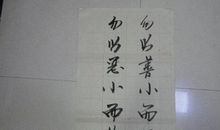 勿以善小而
勿以恶小而